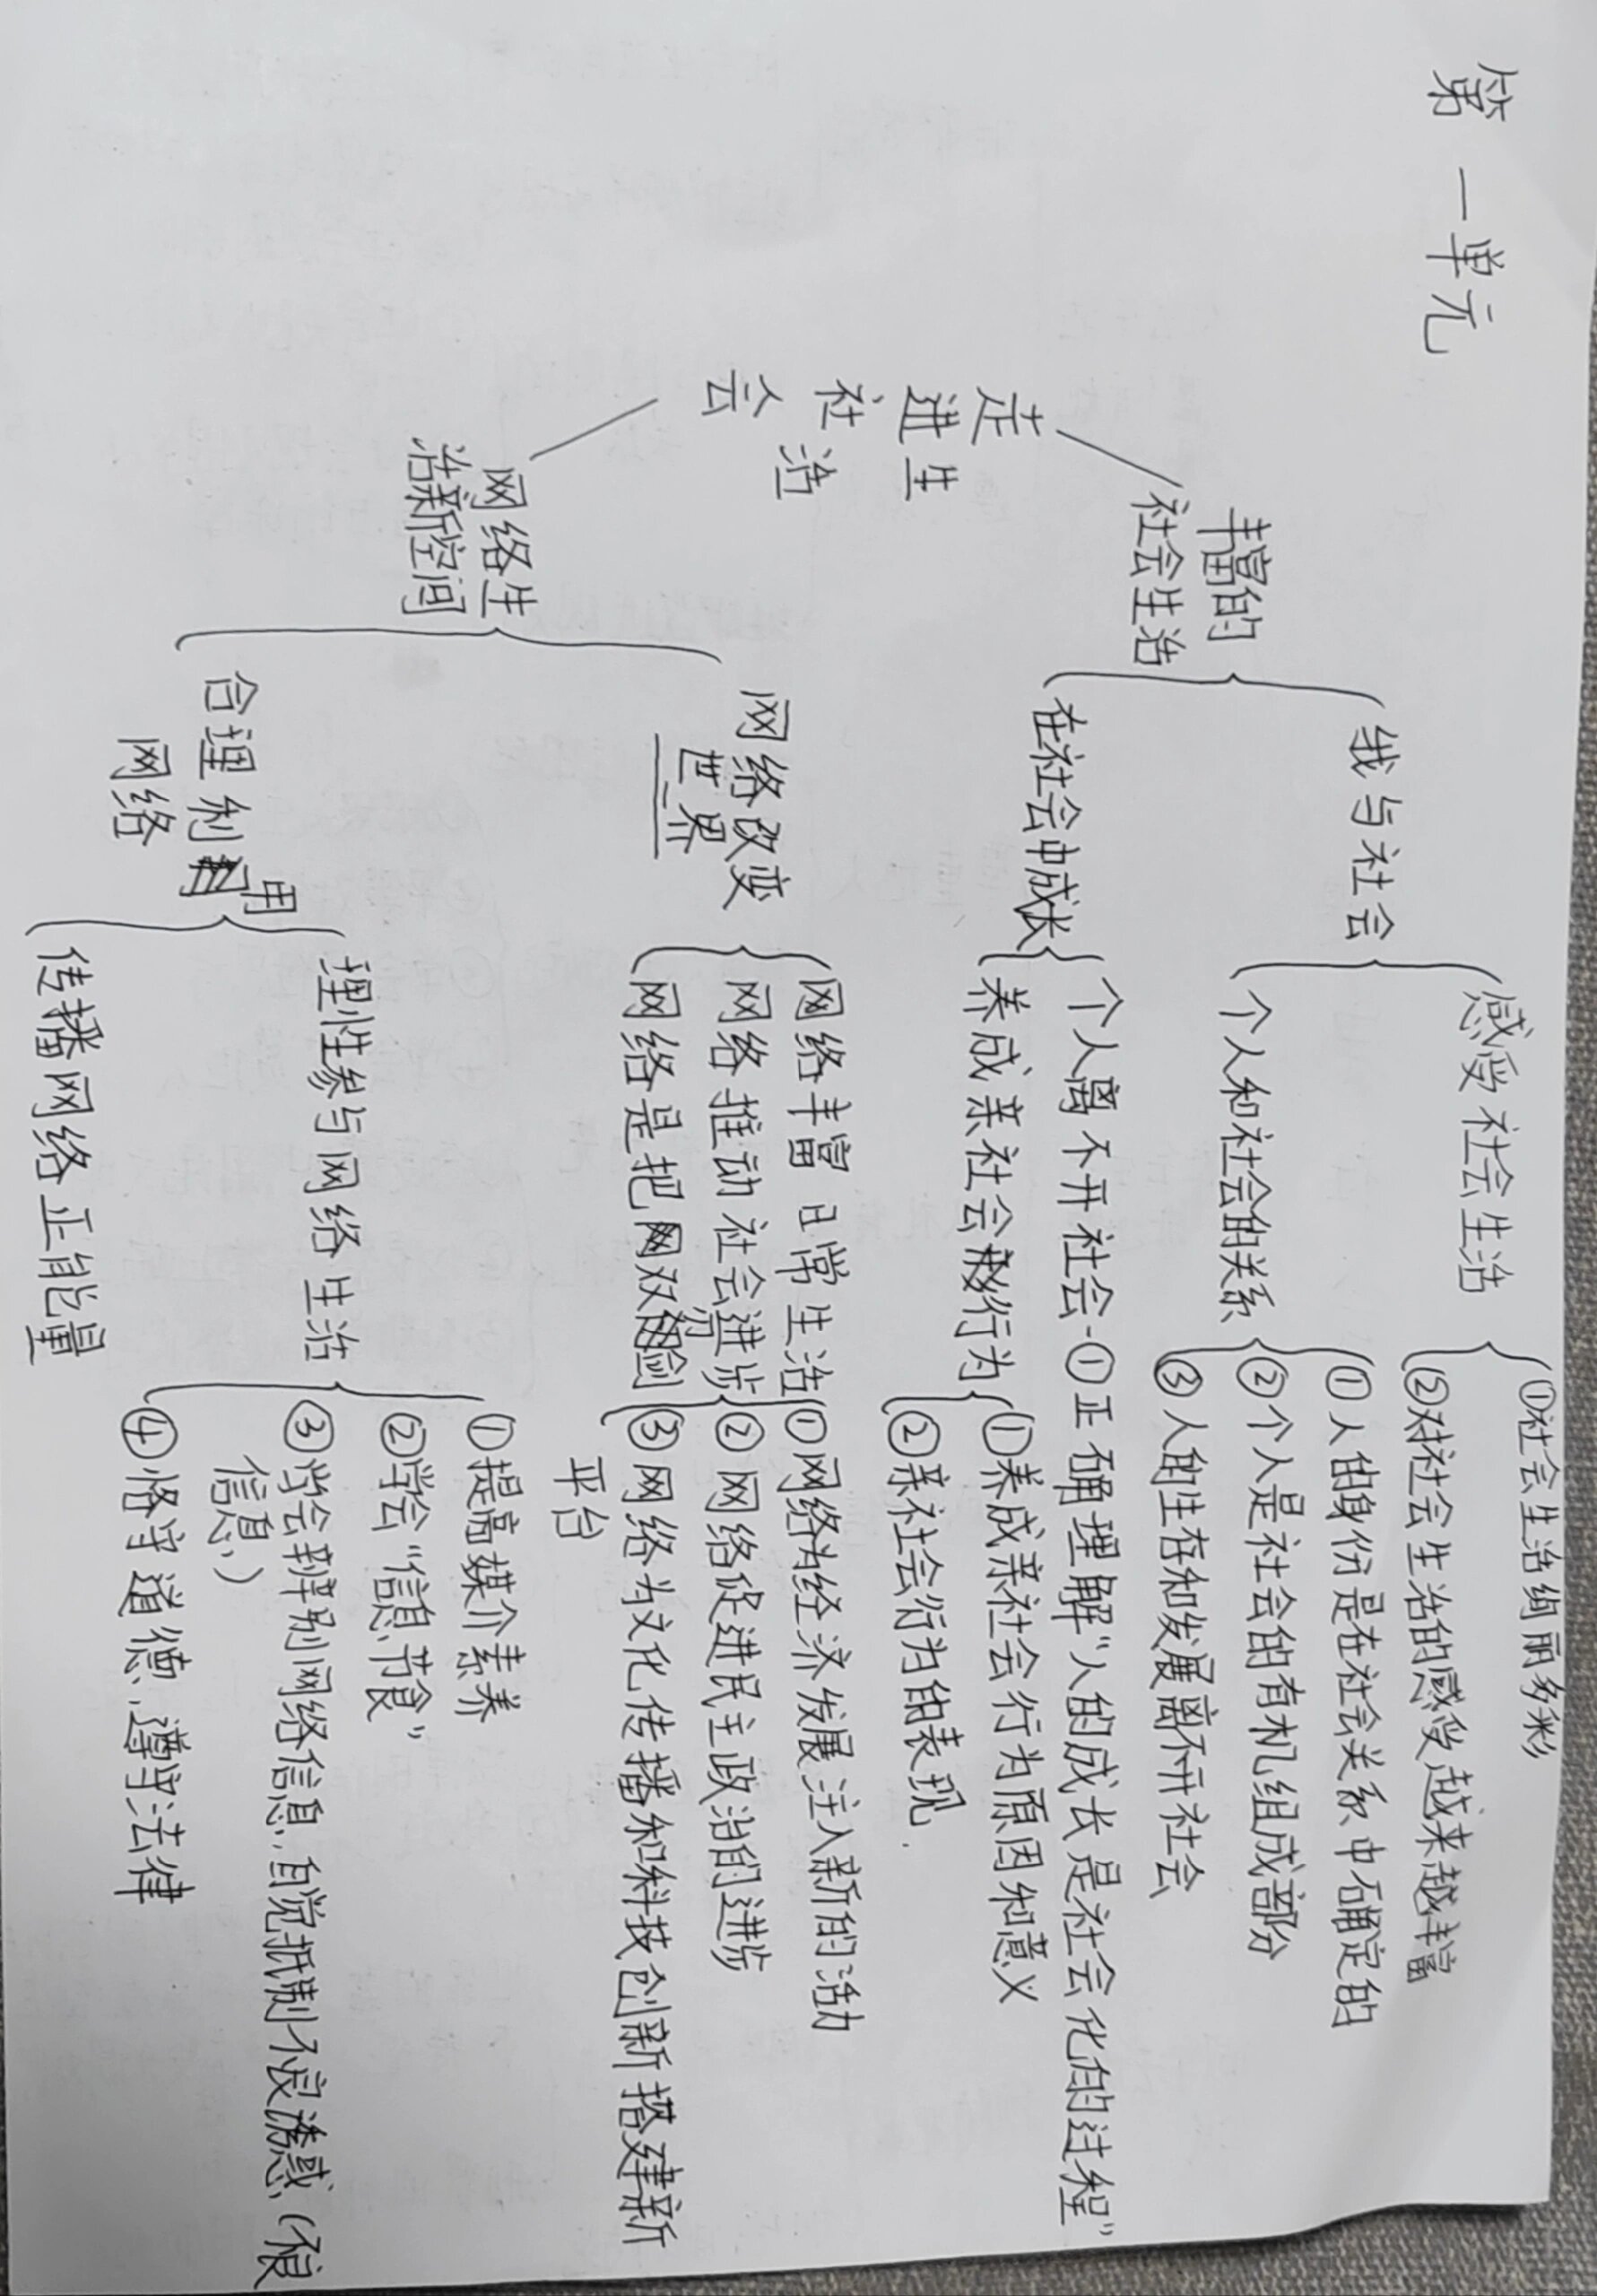 第一单元
走进社会
生活
丰富的
社会生活
我与社会
感受社会生活
①社会生活绚丽多彩
②对社会生活的感受越来越丰富
个人和社会的关系
①人的身份是在社会关系中确定的
②个人是社会的有机组成部分
③人的生存和发展离不开社会
在社会中成长
个人离不开社会-①正确理解“人的成长是社会化的过程”
养成亲社会行为
①养成亲社会行为原因和意义
②亲社会行为的表现.
网络生
活新空间
网络改变
世界
网络丰富日常生活
网络推动社会进步
①网络为经济发展注入新的活动
②网络促进民主政治的进步
③网络为文化传播和科技创新搭建新
平台
网络是把双刃剑
合理利用
网络
理性参与网络生活
①提高媒介素养
②学会“信息节食”
③学会辨别网络信息,自觉抵制不良诱惑,(不良
信息,)
④恪守道德,遵守法律
传播网络正能量